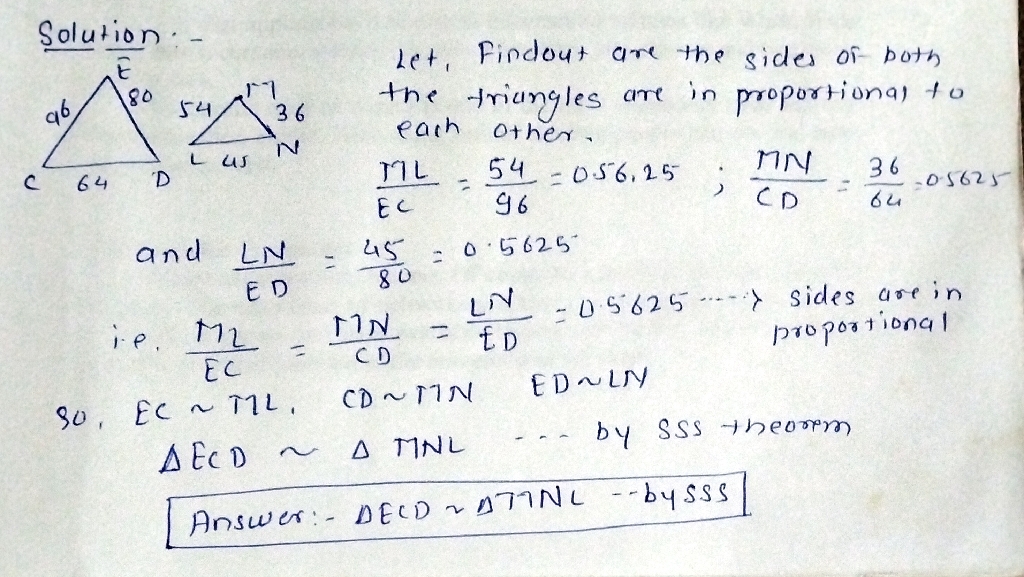 Solution :-
E
96 80
C 64 D
54 M 36
L 45 N
Let, Findout are the sides of both
the triangles are in proportional to
each other.
ML/EC = 54/96 = 056.25 ; MN/CD = 36/64 = 0.5625
and LN/ED = 45/80 = 0.5625
i.e. ML/EC = MN/CD = LN/ED = 0.5625 ----> sides are in
proportional
So, EC ~ ML, CD ~ MN ED ~ LN
Δ ECD ~ Δ MNL --- by SSS theorem
Answer:- ΔECD ~ ΔMNL --by SSS